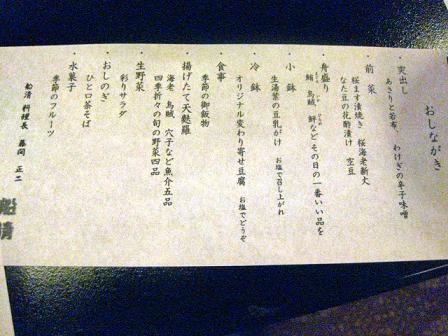 おしながき
・突出し
あさりと若布、わけぎの辛子味噌
・前菜
桜ます漬焼き 桜海老新丈
なた豆の花酢漬け 空豆
・舟盛り
鮪 烏賊 鮃など その日の一番いい品を
・小鉢
生湯葉の豆乳がけ お塩で召し上がれ
・冷鉢
オリジナル変わり寄せ豆腐 お塩でどうぞ
・食事
季節の御飯物
・揚げたて天麩羅
海老 烏賊 穴子など魚介五品
四季折々の旬の野菜四品
・生野菜
彩りサラダ
・おしのぎ
ひと口茶そば
・水菓子
季節のフルーツ
船清 料理長 藤岡 正二
船清